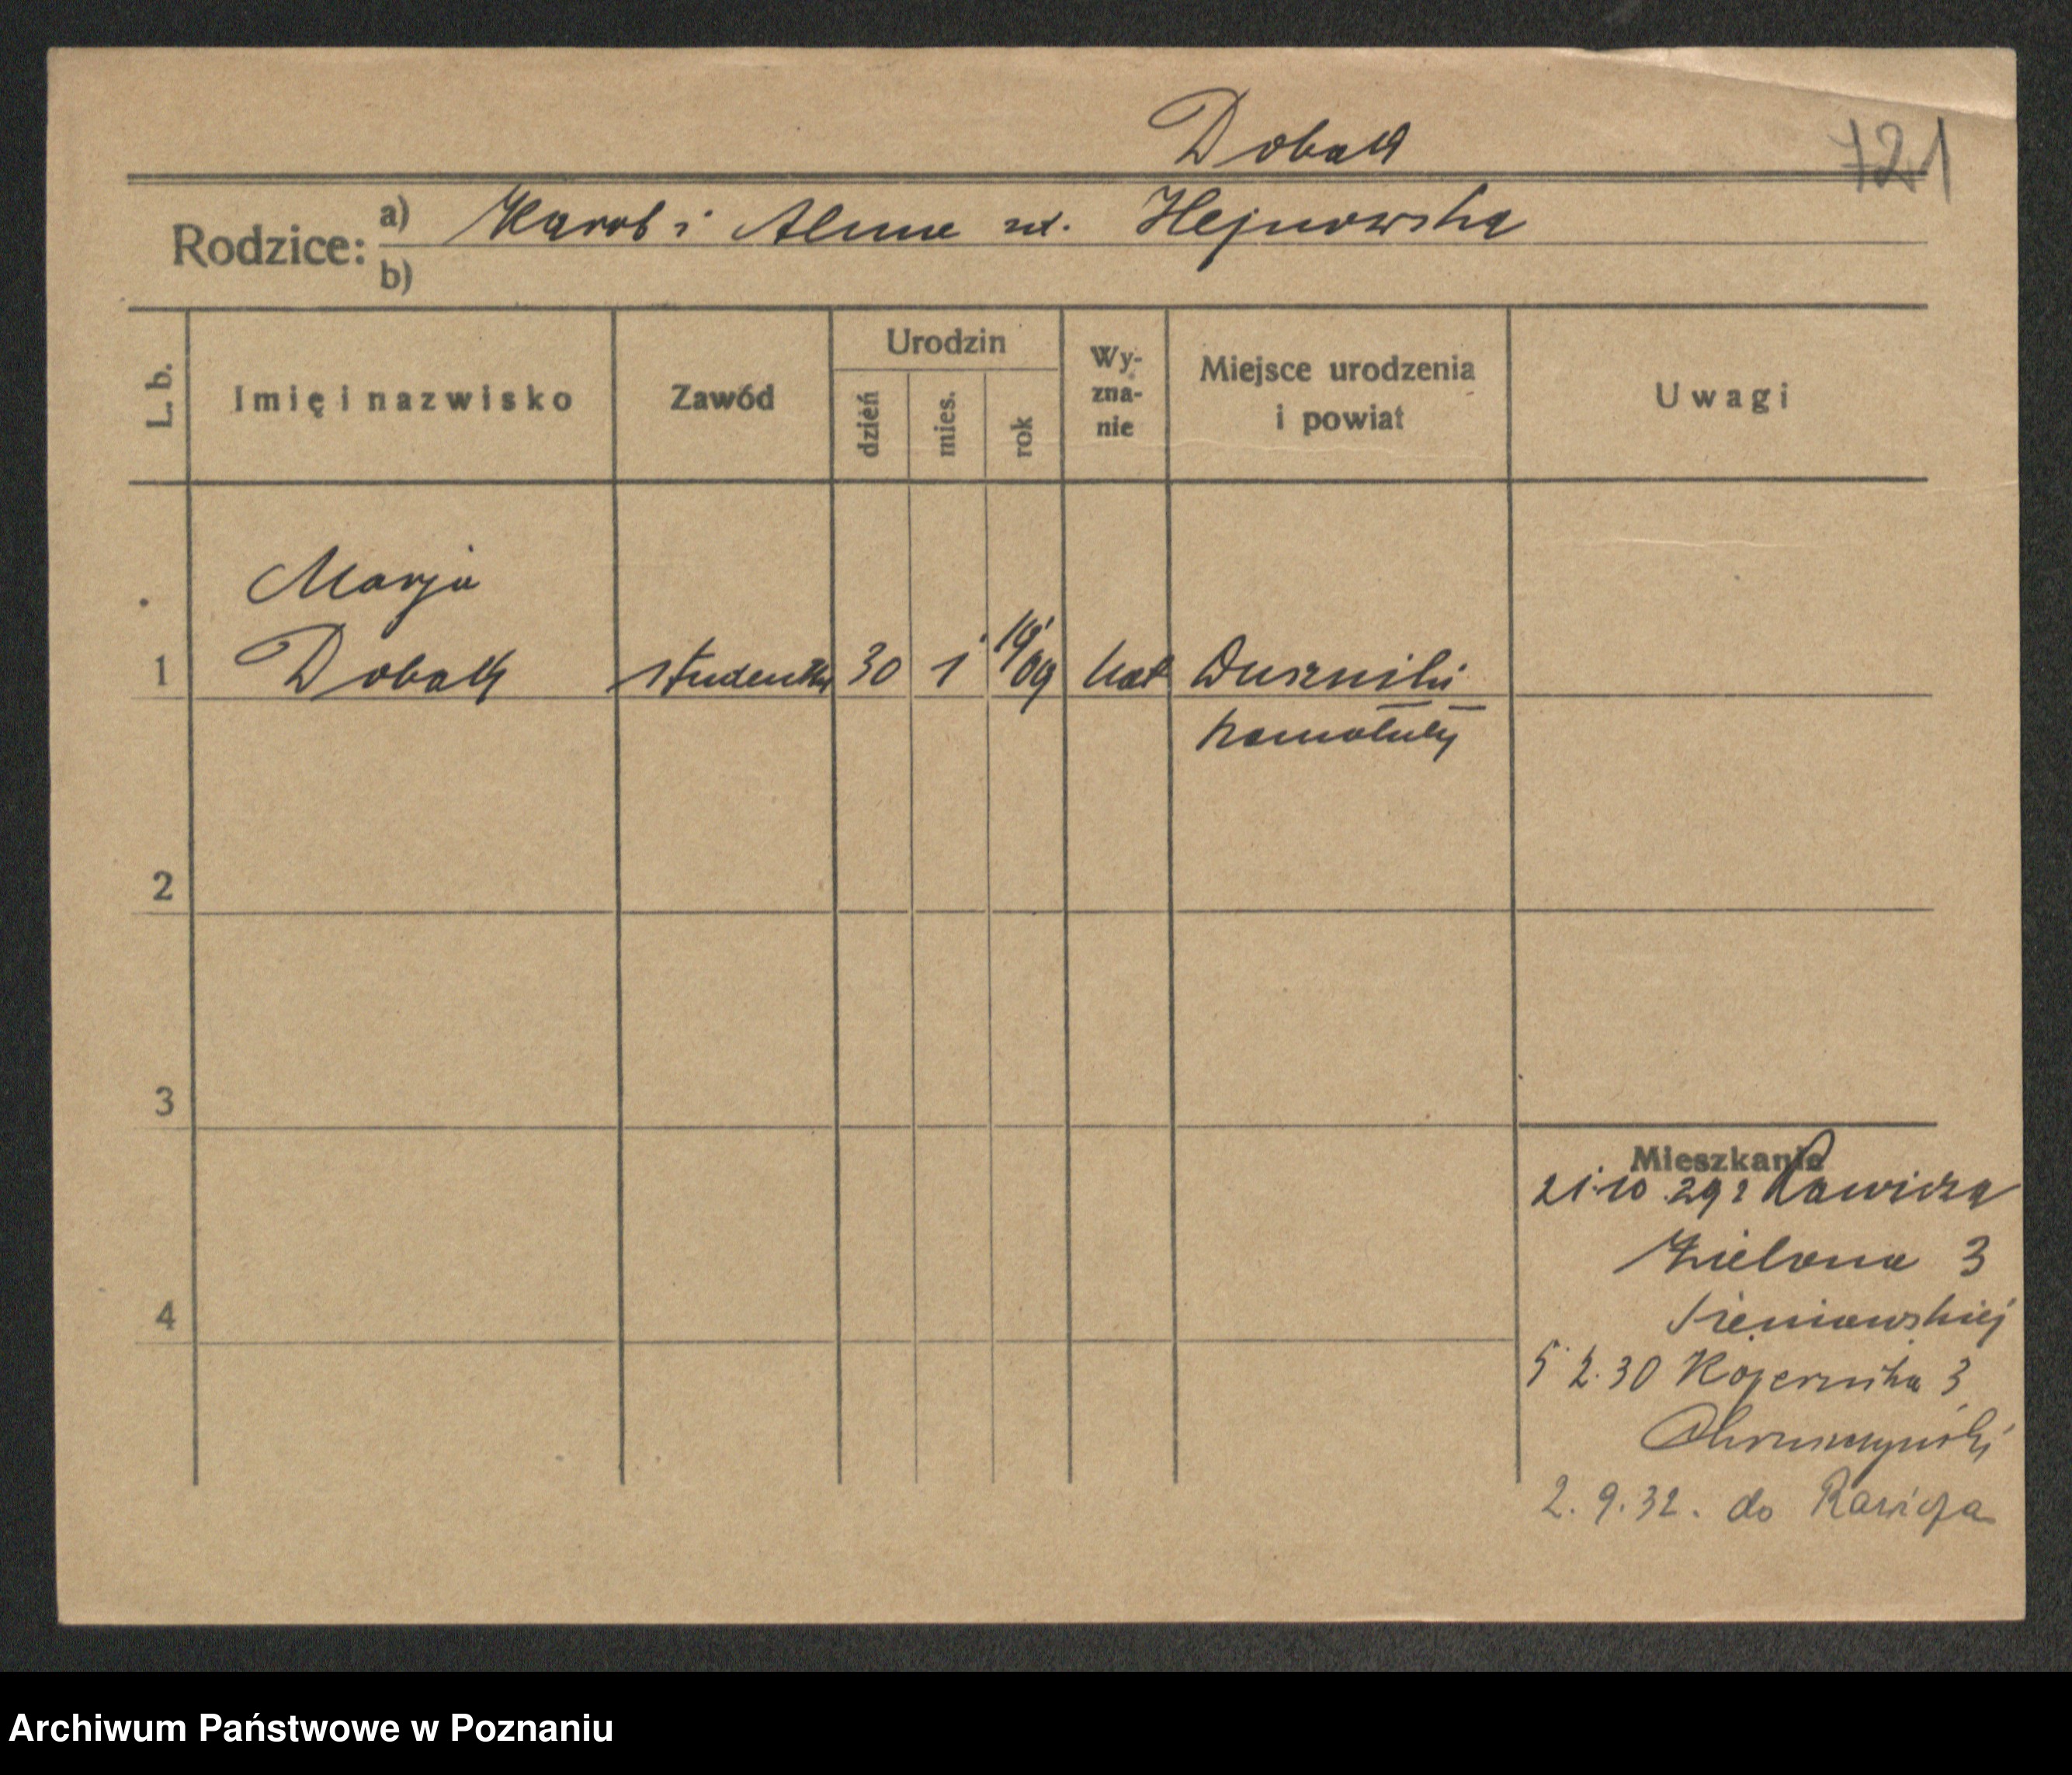 Dobak
721
Rodzice: a) Karol i Alma zd. Hejnowska
b)
L. b. Imię i nazwisko Zawód Urodzin dzień mies. rok Wy-zna-nie Miejsce urodzenia i powiat Uwagi
Marja
1 Dobak studentka 30 1 19/09 kat Duszniki
Szamotuły
2
3
Mieszkanie
21.10.29 z Rawicza
Zielona 3
4 Sieniawskiej
5 2.30 Kopernika 3
2.9.32. do Rawicza
Archiwum Państwowe w Poznaniu